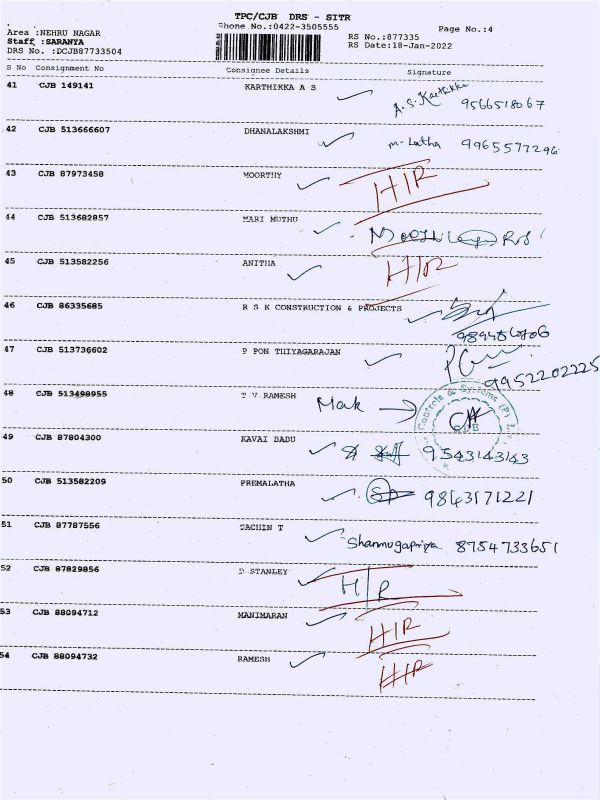 TPC/CJB DRS - SITR
Phone No.:0422-3505555
Page No.:4
Area :NEHRU NAGAR
Staff :SARANYA
DRS No. :DCJB87733504
RS No.:877335
RS Date:18-Jan-2022
S No Consignment No Consignee Details Signature
41 CJB 149141 KARTHIKKA A S A.S.Karthikka 9566518067
42 CJB 513666607 DHANALAKSHMI m-Latha 9965577296
43 CJB 87973458 MOORTHY H/R
44 CJB 513682857 MARI MUTHU
45 CJB 513582256 ANITHA H/R
46 CJB 86335685 R S K CONSTRUCTION & PROJECTS
47 CJB 513736602 P PON THIYAGARAJAN 9952202225
48 CJB 513498955 T V RAMESH Mak
Controls & Systems (P)
49 CJB 87804300 KAVAI DADU 9543143143
50 CJB 513582209 PREMALATHA 9843171221
51 CJB 87787556 SACHIN T Shanmugapriya 8754733651
52 CJB 87829856 D STANLEY H/R
53 CJB 88094712 MANIMARAN H/R
54 CJB 88094732 RAMESH H/R